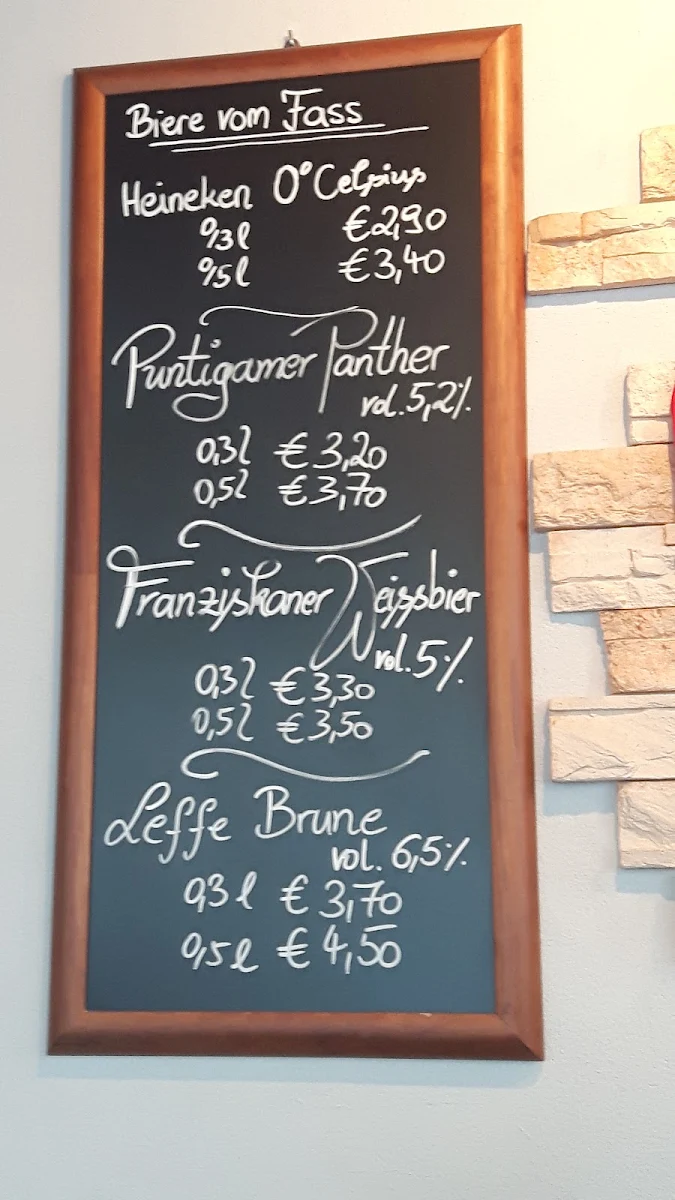 Biere vom Fass
Heineken 0°Celsius
0,3l €2,90
0,5l €3,40
Puntigamer Panther
vol. 5,2%
0,3l €3,20
0,5l €3,70
Franziskaner Weissbier
vol. 5%
0,3l €3,30
0,5l €3,50
Leffe Brune
vol. 6,5%
0,3l €3,70
0,5l €4,50